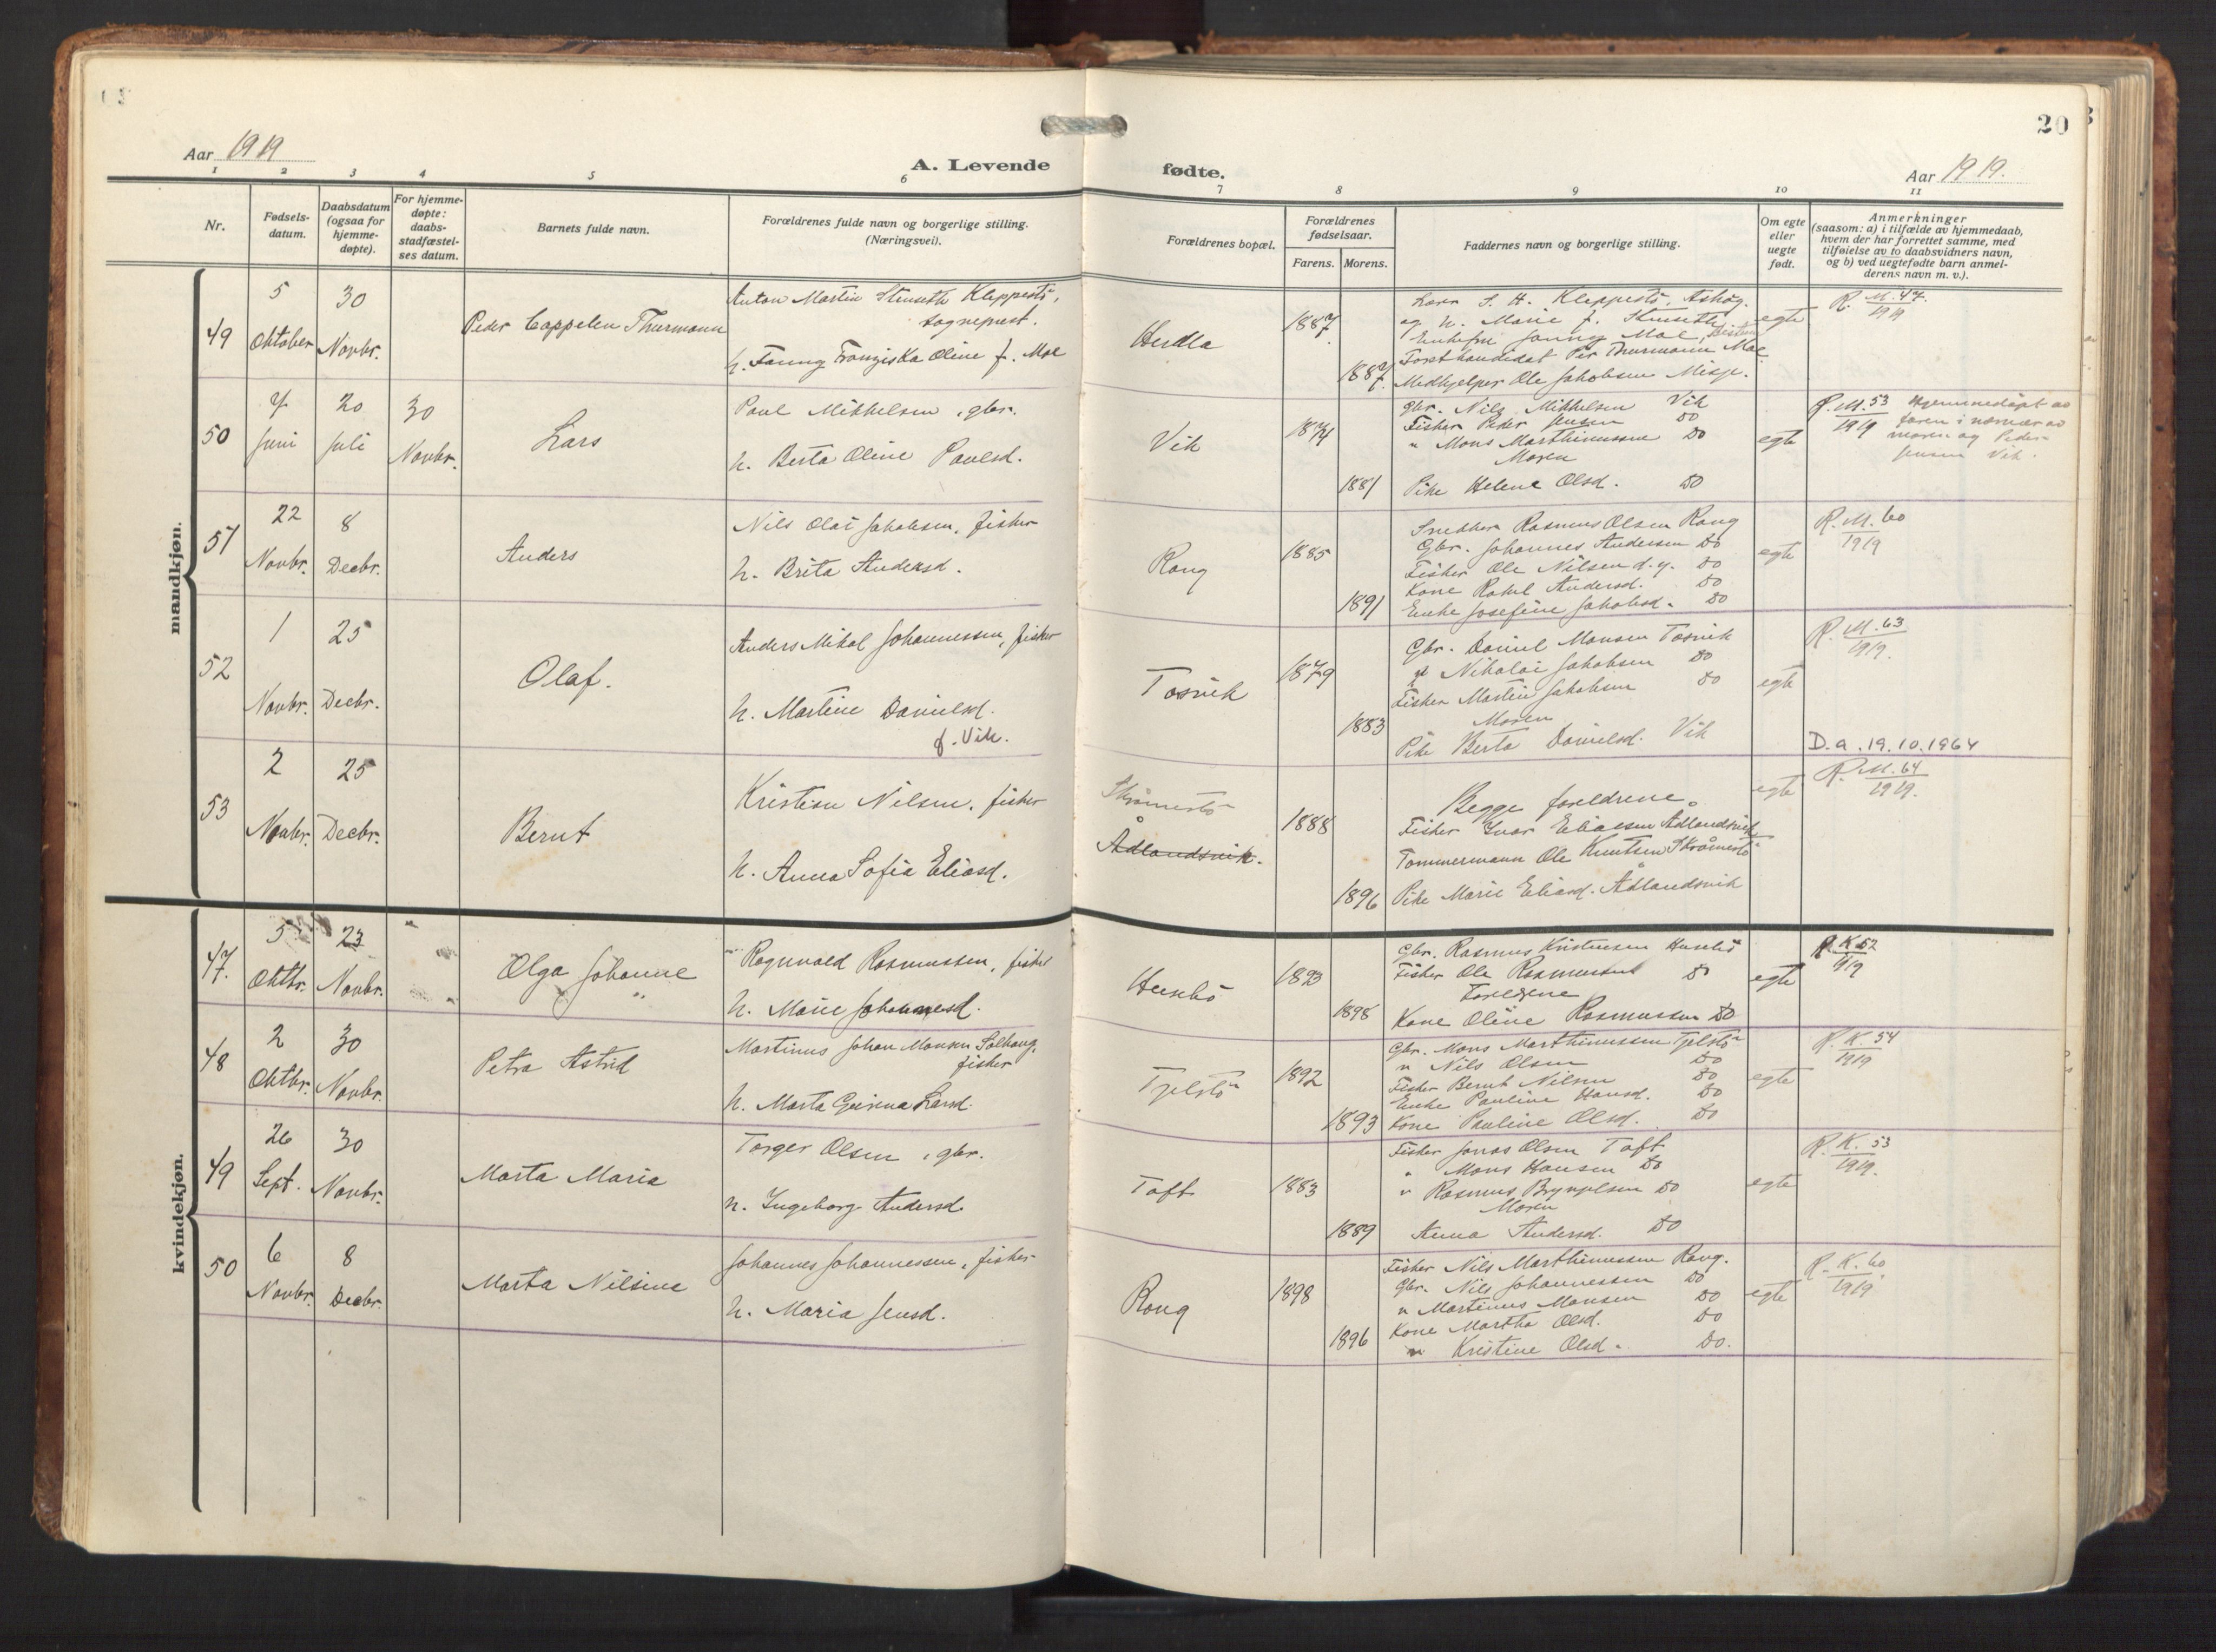 20
Aar 1919
A. Levende
fødte.
Aar 1919.
1 2 3 4 5 6 7 8 9 10 11
Nr.
Fødsels-
datum.
Daabsdatum
(ogsaa for
hjemme-
døpte).
For hjemme-
døpte:
daabs-
stadfæstel-
ses datum.
Barnets fulde navn.
Forældrenes fulde navn og borgerlige stilling.
(Næringsvei).
Forældrenes bopæl.
Forældrenes
fødselsaar.
Farens. Morens.
Faddernes navn og borgerlige stilling.
Om egte
eller
uegte
født.
Anmerkninger
(saasom: a) i tilfælde av hjemmedaab,
hvem der har forrettet samme, med
tilføielse av to daabsvidners navn,
og b) ved uegtefødte barn anmel-
derens navn m. v.).
mandkjøn.
49
5
Oktober
30
Novbr.
Peder Cappelen Thurmann
Anton Martin Stenseth Kleppestö,
sogneprest.
h. Fanny Franziska Oline f. Moe
Herdla
1887
1887
Lærer S. H. Kleppestö, Askøy.
og h. Marie f. Stenseth
Enkefru Fanny Moe,
Forstkandidat Per Thurmann Moe
Medhjelper Ole Jakobsen Misje.
egte
R. M. 47.
1919
50
7
Juni
20
Juli
30
Novbr.
Lars
Paul Mikkelsen, gbr.
h. Berta Oline Paulsd.
Vik
1874
1881
Gbr. Nils Mikkelsen Vik
Fisker Peder Jensen Do
" Mons Marthinussen Do
Moren
Pike Helene Olsd. Do
egte
R. M. 53
1919
Hjemmedöpt av
faren i nærvær av
moren og Peder
Jensen Vik.
51
22
Novbr.
8
Decbr.
Anders
Nils Olai Jakobsen, fisker
h. Brita Andersd.
Rong
1885
1891
Snedker Rasmus Olsen Rong
Gbr. Johannes Andersen Do
Fisker Ole Nilsen d.y. Do
Kone Rakel Andersd. Do
Enke Josefine Jakobsd. Do
egte
R. M. 60
1919
52
1
Novbr.
25
Decbr.
Olaf.
Anders Mikal Johannessen, fisker
h. Martine Danielsd.
f. Vik.
Tosvik
1879
1883
Gbr. Daniel Monsen Tosvik
" Nikolai Jakobsen Do
Fisker Martin Jakobsen Do
Moren
Pike Berta Danielsd. Vik
egte
R. M. 63
1919.
D.a. 19.10.1964
53
2
Novbr.
25
Decbr.
Bernt
Kristian Nilsen, fisker
h. Anna Sofia Eliasd.
Skråmestö
Ådlandsvik.
1888
1896
Begge foreldrene.
Fisker Ivar Eliassen Ådlandsvik
Tømmermann Ole Knutsen Skråmestö
Pike Marie Eliasd. Ådlandsvik
egte
R. M. 64
1919.
kvindekjøn.
47.
5
Oktbr.
23
Novbr.
Olga Johanne
Rognvald Rasmussen, fisker
h. Marie Johannesd.
Husebö
1893
1898
Gbr. Rasmus Kristensen Husebö
Fisker Ole Rasmussen Do
Foreldrene
Kone Oline Rasmussen Do
egte
R. K. 52
919
48
2
Oktbr.
30
Novbr.
Petra Astrid
Martinus Johan Monsen Solhaug,
fisker
h. Marta Gurina Larsd.
Tjelstö
1892
1893
Gbr. Mons Marthinussen Tjelstö
" Nils Olsen Do
Fisker Bernt Nilsen Do
Enke Pauline Hansd. Do
Kone Pauline Olsd. Do
egte
R. K. 54
1919
49
26
Sept.
30
Novbr.
Marta Maria
Torger Olsen, gbr.
h. Ingeborg Andersd.
Toft
1883
1889
Fisker Jonas Olsen Toft
" Mons Hansen Do
" Rasmus Brynjelsen Do
Moren
Anna Andersd. Do
egte
R. K. 53
1919.
50
6
Novbr.
8
Decbr.
Marta Nilsine
Johannes Johannessen, fisker
h. Maria Jensd.
Rong
1898
1896
Fisker Nils Marthinussen Rong.
Gbr. Nils Johannessen Do
" Martinus Monsen Do
Kone Martha Olsd. Do
" Kristine Olsd. Do.
egte
R. K. 60
1919.